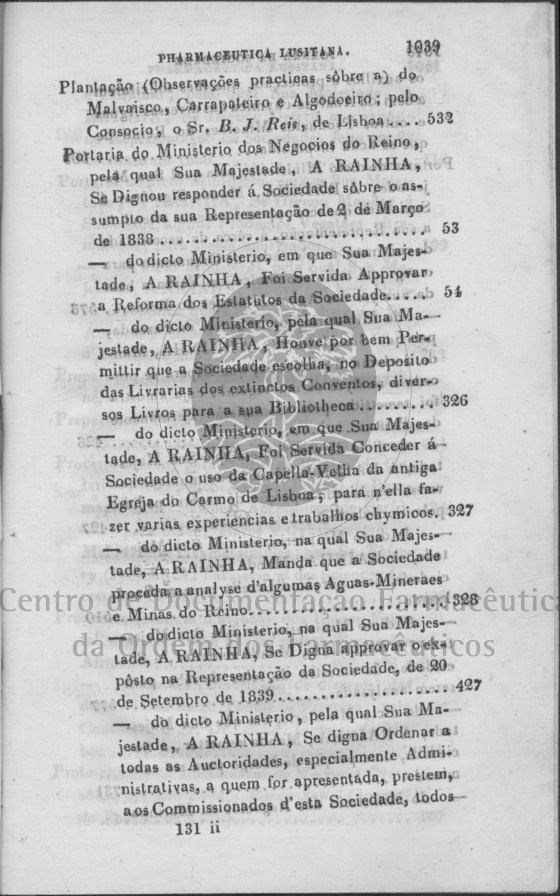 PHARMACEUTICA LUSITANA. 1039
Plantação (Observações practicas sôbre a) do
Malvaisco, Carrapateiro e Algodoeiro; pelo
Consocio, o Sr. B. J. Reis, de Lisboa.... 532
Portaria do Ministerio dos Negocios do Reino,
pela qual Sua Majestade, A RAINHA,
Se Dignou responder á Sociedade sôbre o as-
sumpto da sua Representação de 2 de Março
de 1838 .............................. 53
— do dicto Ministerio, em que Sua Majes-
tade, A RAINHA, Foi Servida Approvar
a Reforma dos Estatutos da Sociedade...... 54
— do dicto Ministerio, pela qual Sua Ma-
jestade, A RAINHA, Houve por bem Per-
mittir que a Sociedade escolha, no Deposito
das Livrarias dos extinctos Conventos, diver-
sos Livros para a sua Bibliotheca.......... 326
— do dicto Ministerio, em que Sua Majes-
tade, A RAINHA, Foi Servida Conceder á
Sociedade o uso da Capella-Velha da antiga
Egreja do Carmo de Lisboa, para n'ella fa-
zer varias experiencias e trabalhos chymicos. 327
— do dicto Ministerio, na qual Sua Majes-
tade, A RAINHA, Manda que a Sociedade
proceda a analyse d'algumas Aguas-Mineraes
e Minas do Reino...................... 328
Centro de Documentação Farmacêutica
— do dicto Ministerio, na qual Sua Majes-
da Ordem dos Farmacêuticos
tade, A RAINHA, Se Digna approvar o ex-
pôsto na Representação da Sociedade, de 20
de Setembro de 1839..................... 427
— do dicto Ministerio, pela qual Sua Ma-
jestade, A RAINHA, Se digna Ordenar a
todas as Auctoridades, especialmente Admi-
nistrativas, a quem for apresentada, prestem,
aos Commissionados d'esta Sociedade, todos
131 ii